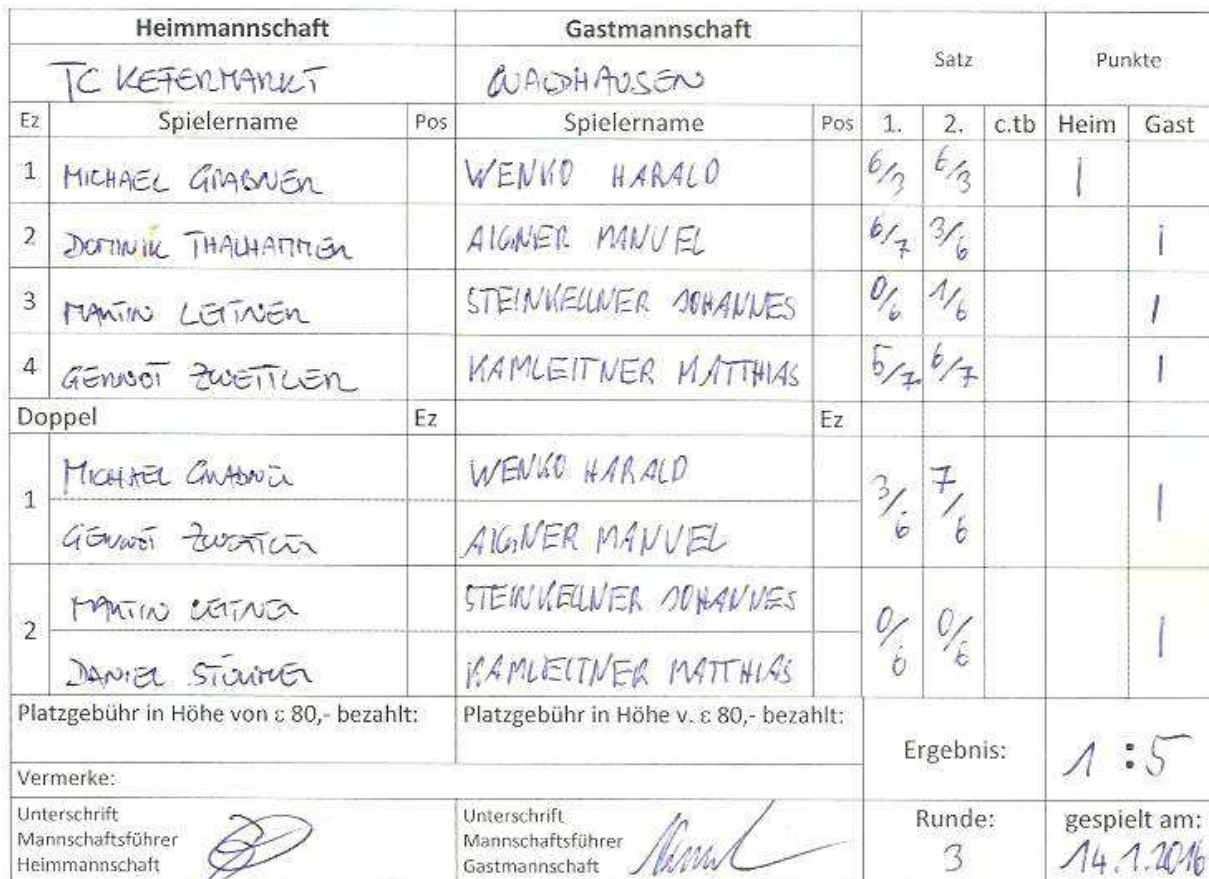 Heimmannschaft Gastmannschaft Satz Punkte
TC KEFERMARKT WALDHAUSEN
Ez Spielername Pos Spielername Pos 1. 2. c.tb Heim Gast
1 MICHAEL GRABNER WENKO HARALD 6/3 6/3 1
2 DOMINIK THALHAMMER AIGNER MANUEL 6/7 3/6 1
3 MARTIN LEITNER STEINKELLNER JOHANNES 0/6 1/6 1
4 GERNOT ZWETTLER KAMLEITNER MATTHIAS 5/7 6/7 1
Doppel Ez Ez
1 MICHAEL GRABNER WENKO HARALD 3/6 7/6 1
GERNOT ZWETTLER AIGNER MANUEL
2 MARTIN LEITNER STEINKELLNER JOHANNES 0/6 0/6 1
DANIEL KAMLEITNER MATTHIAS
Platzgebühr in Höhe von ε 80,- bezahlt: Platzgebühr in Höhe v. ε 80,- bezahlt:
Ergebnis: 1:5
Vermerke:
Unterschrift Unterschrift Runde: gespielt am:
Mannschaftsführer Mannschaftsführer
Heimmannschaft Gastmannschaft 3 14.1.2016